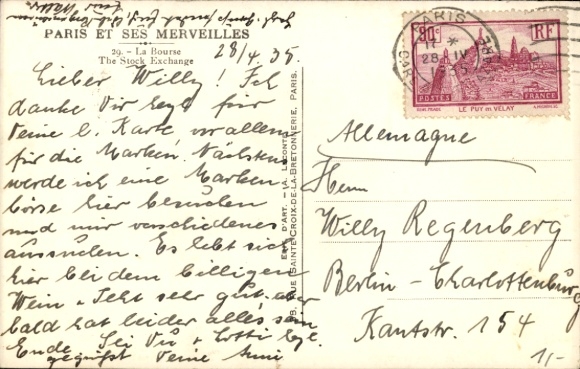 PARIS ET SES MERVEILLES
29. - La Bourse
The Stock Exchange
28/4 35.
Lieber Willy! Ich
danke Dir für
Deine l. Karte vor allem
für die Marken. Nächstens
werde ich eine Marken-
börse hier besuchen
und mir verschiedenes
aussuchen. Es lebt sich
hier bei dem billigen
Wein u. Sekt sehr gut, aber
bald hat leider alles sein
Ende. Sei Du u. Lotti
gegrüßt Deine
PARIS
28 IV
90c
RF
POSTES
LE PUY EN VELAY
FRANCE
Allemagne
Herrn
Willy Regenberg
Berlin-Charlottenburg
Kantstr. 154
1/-
RUE SAINTE-CROIX-DE-LA-BRETONNERIE, PARIS.